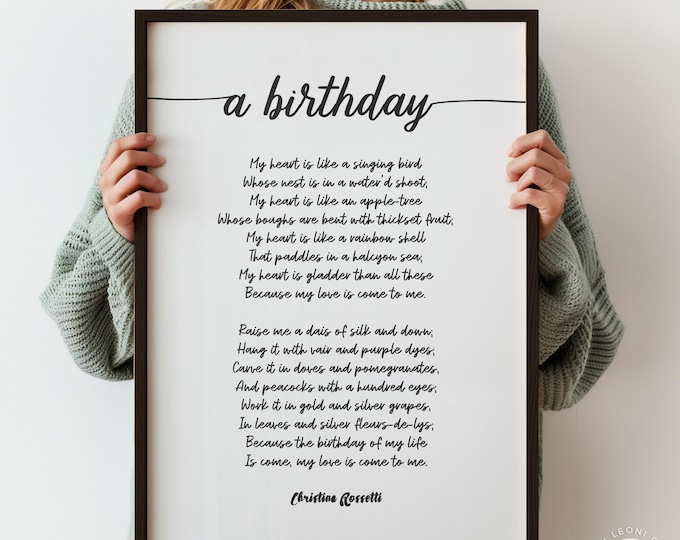 a birthday
My heart is like a singing bird
Whose nest is in a water'd shoot;
My heart is like an apple-tree
Whose boughs are bent with thickset fruit;
My heart is like a rainbow shell
That paddles in a halcyon sea;
My heart is gladder than all these
Because my love is come to me.
Raise me a dais of silk and down;
Hang it with vair and purple dyes;
Carve it in doves and pomegranates,
And peacocks with a hundred eyes;
Work it in gold and silver grapes,
In leaves and silver fleurs-de-lys;
Because the birthday of my life
Is come, my love is come to me.
Christina Rossetti
LEONI